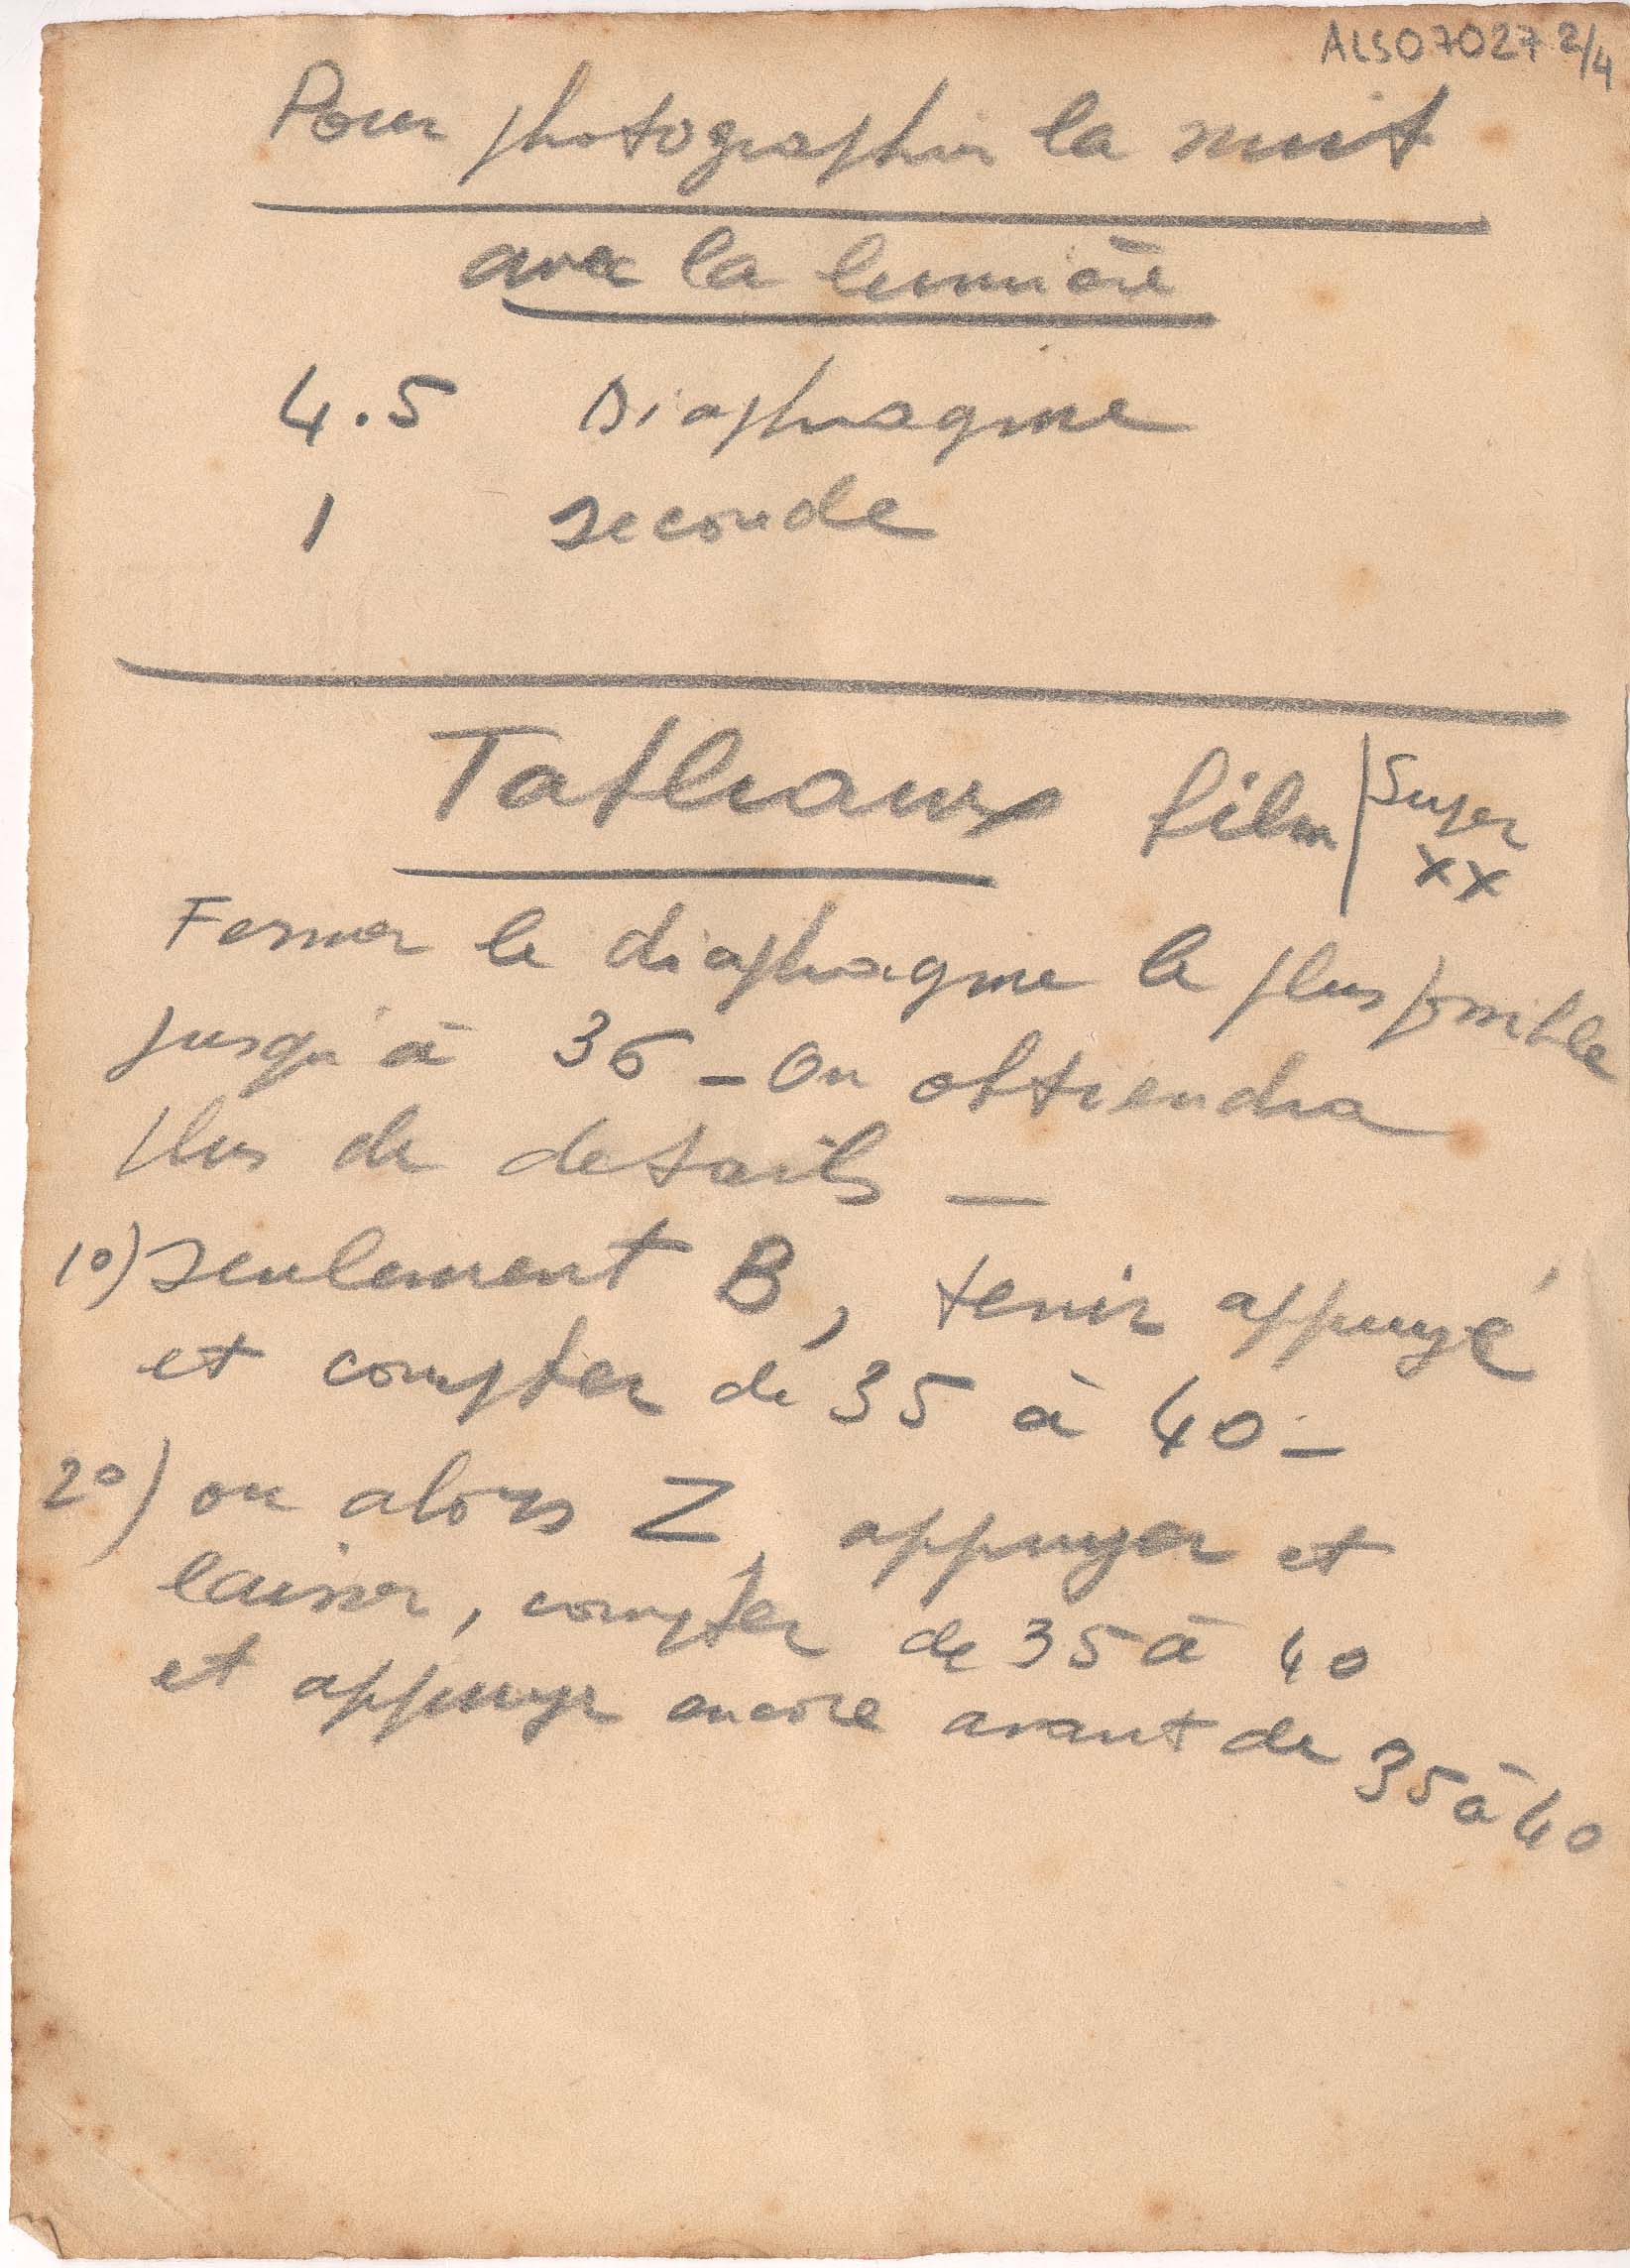 ALS07027 2/4
Pour photographier la nuit
avec la lumière
4.5 Diaphragme
1 seconde
Tableaux film | Super
XX
Fermer le diaphragme le plus possible
jusqu'à 36 – On obtiendra
plus de details –
1º) seulement B, tenir appuyé
et compter de 35 à 40 –
2º) ou alors Z, appuyer et
laisser, compter de 35 à 40
et appuyer encore avant de 35 à 40